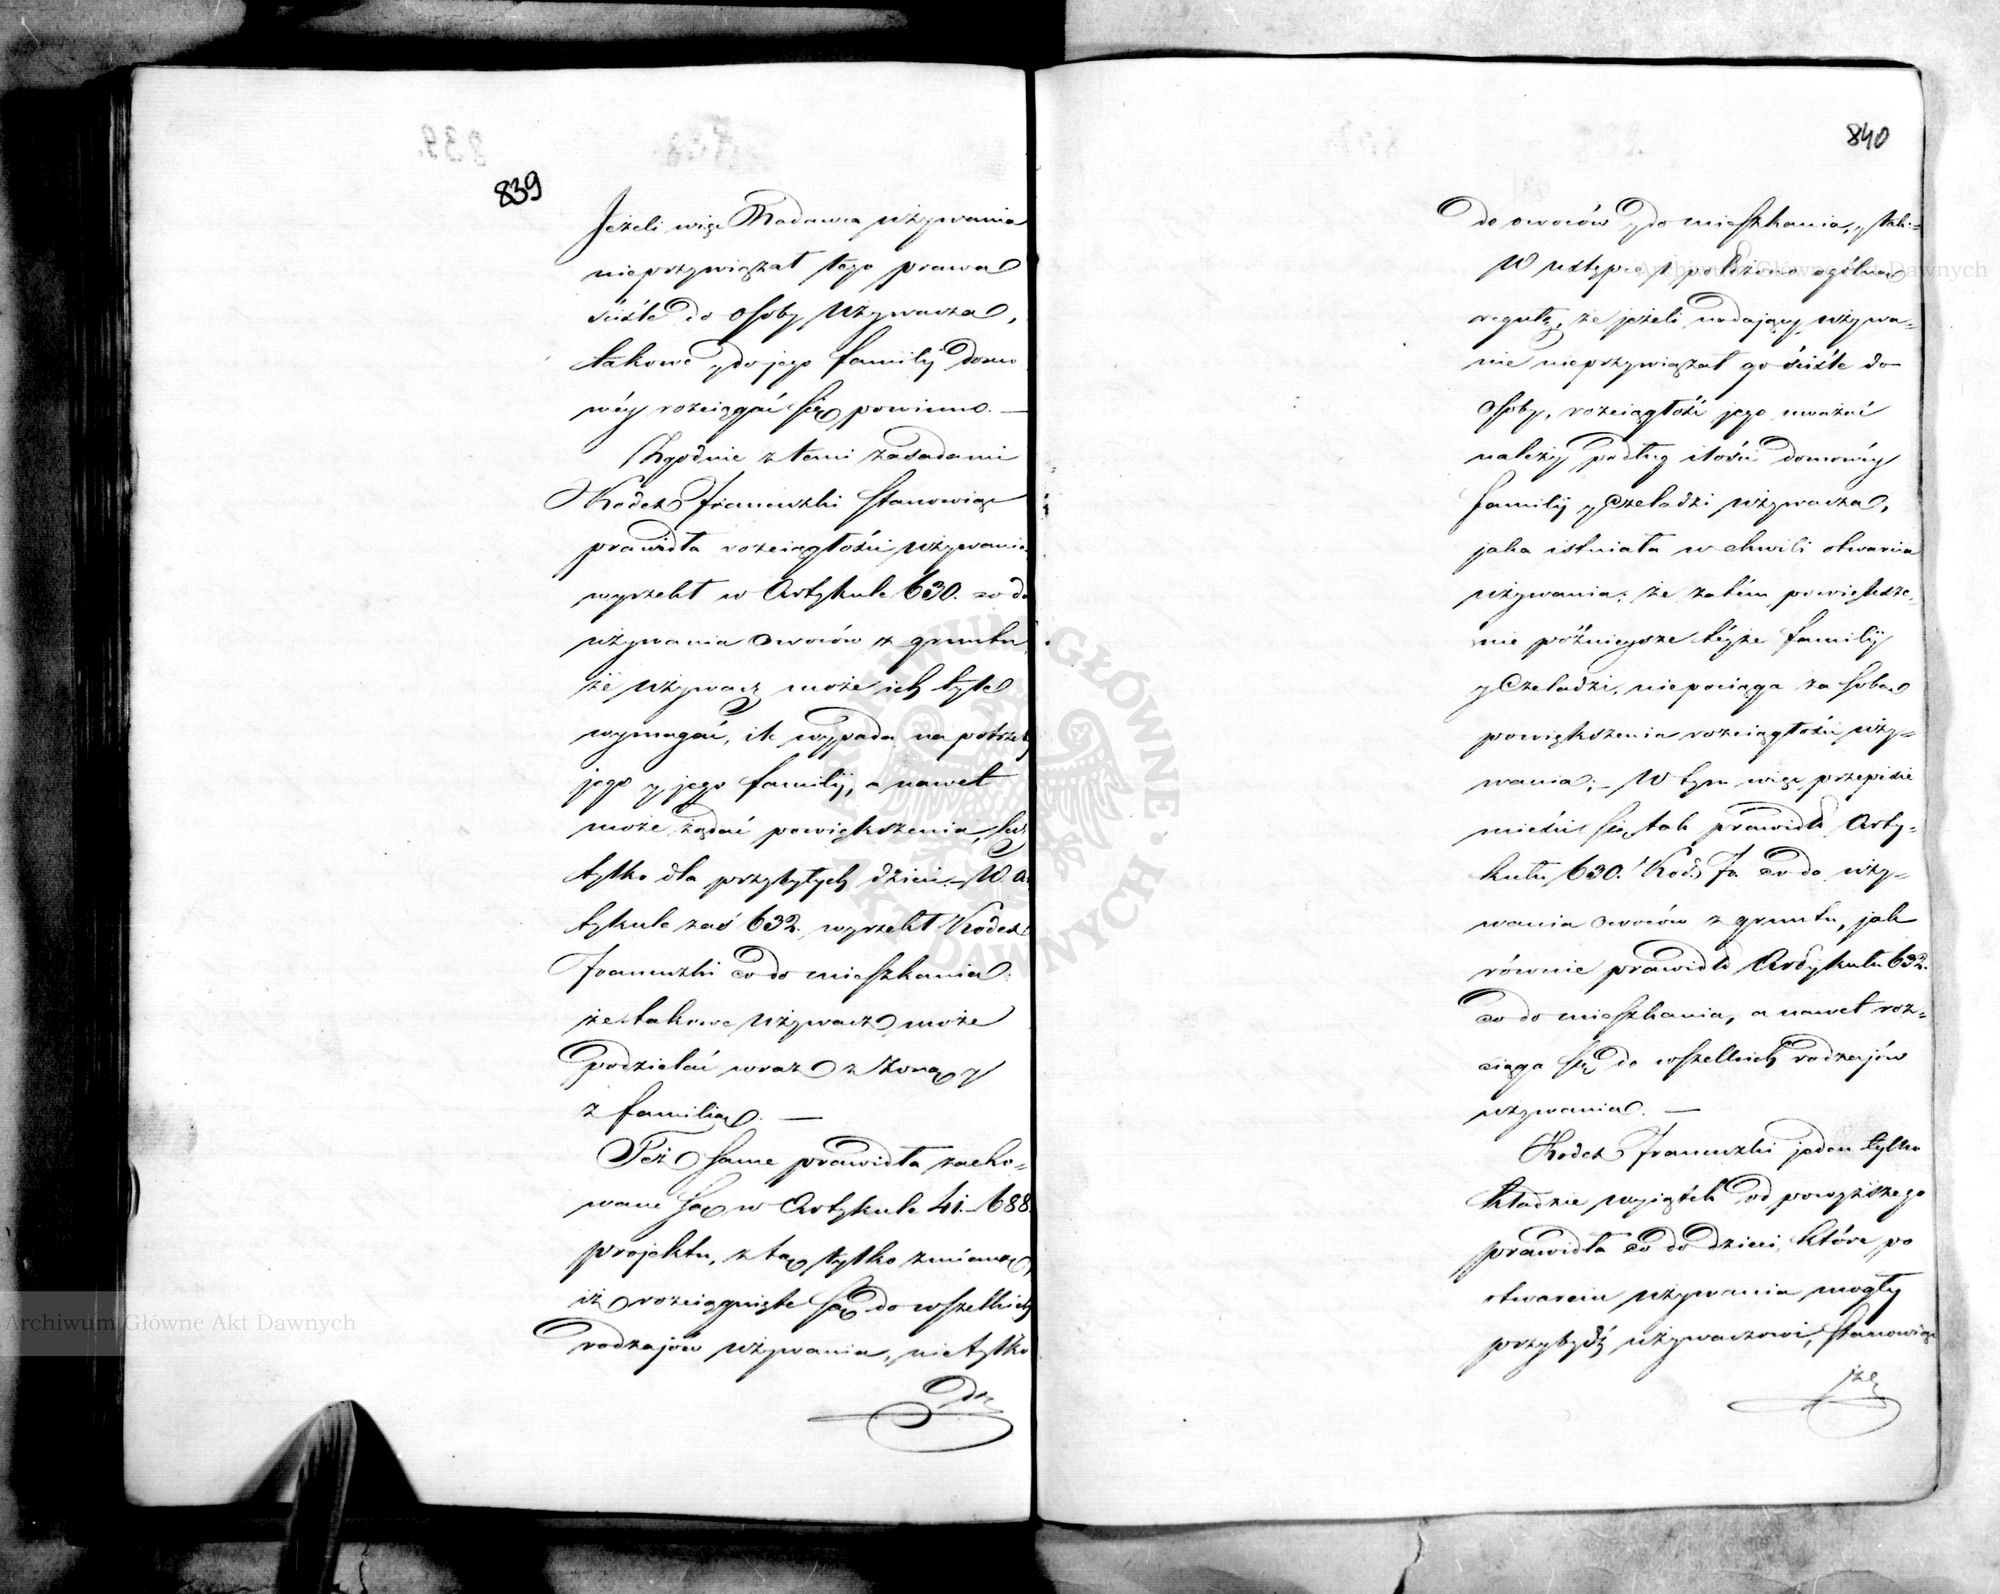 839
Jeżeli więc Nadawca używania
nieprzywiązał tego prawa
ściśle do osoby używacza,
takowe y do jego familij domo
wéy rozciągać się powinno. —
Zgodnie z temi zasadami
Kodex Francuzki stanowiąc
prawidła rozciągłości używania
wyrzekł w Artykule 630. co do
używania owoców z gruntu,
że używacz może ich tyle
wymagać, ile wypada na potrzeby
jego y jego familij, a nawet
może żądać powiększenia, lecz
tylko dla przybyłych dzieci. – W. Ar
tykule zaś 632. wyrzekł Kodex
Francuzki co do mieszkania:
że takowe używacz może
podzielać wraz z żoną y
z familią. —
Też same prawidła zacho-
wane są w Artykule 41.–688.
projektu, z tą tylko zmianą,
iż rozciągnięte są do wszelkich
rodzajów używania, nie tylko
do
840
do owoców y do mieszkania, y tak:
W ustępie 1 położono ogólną
regułę, że jeżeli nadający używa-
nie nieprzywiązał go ściśle do
osoby, rozciągłość jego uważać
należy podług ilości domowéy
familij y Czeladzi używacza,
jaka istniała w chwili otwarcia
używania; że zatém powiększe-
nie późnieysze téyże familij
y Czeladzi, niepociąga za sobą
powiększenia rozciągłości uży-
wania; – W tym więc przepisie
mieści się tak prawidło Arty-
kułu 630. Kod: Fr. co do uży-
wania owoców z gruntu, jak
równie prawidło Artykułu 632.
co do mieszkania, a nawet roz-
ciąga się do wszelkich rodzajów
używania. —
Kodex Francuzki jeden tylko
kładzie wyjątek od powyższego
prawidła co do dzieci, które po
otwarciu używania mogły
przybydź używaczowi, stanowiąc
Archiwum Główne Akt Dawnych
Archiwum Główne Akt Dawnych
ARCHIWUM GŁÓWNE AKT DAWNYCH